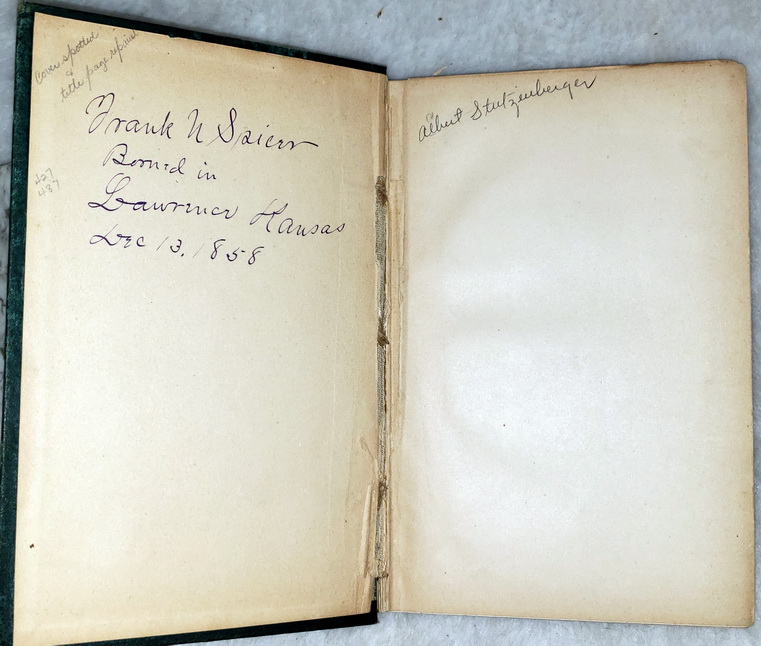 Cover spotted
&
title page repaired
Frank N Spicer
Borned in
Lawrence Kansas
Dec 13, 1858
427
437
Albert Stutzenberger